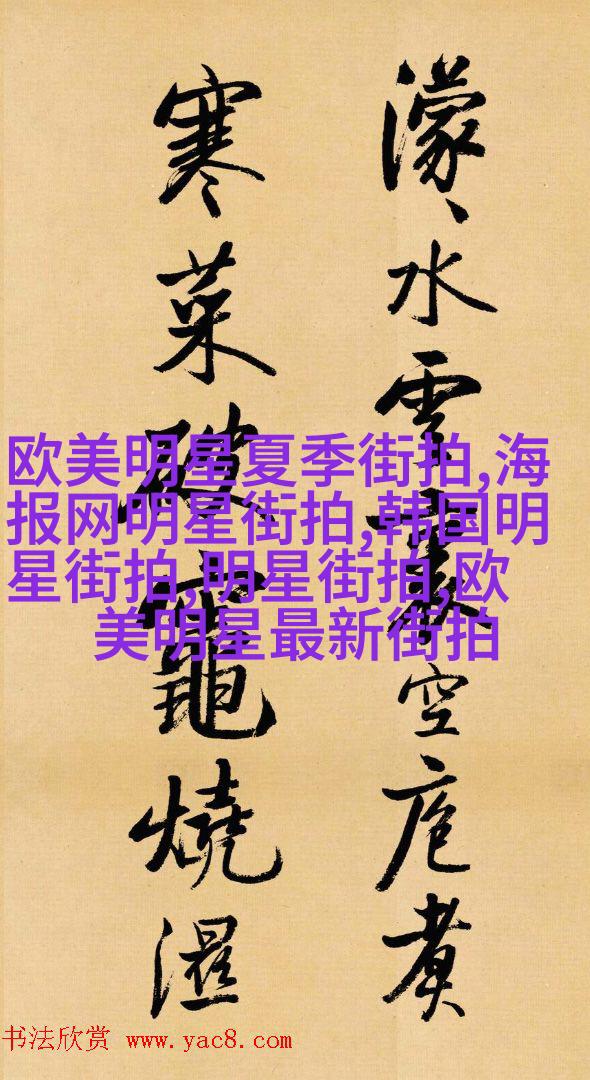 濛〻水雲裏空庖煮
寒菜破竈燒濕
欧美明星夏季街拍,海
报网明星街拍,韩国明
星街拍,明星街拍,欧
美明星最新街拍
书法欣赏 www.yac8.com